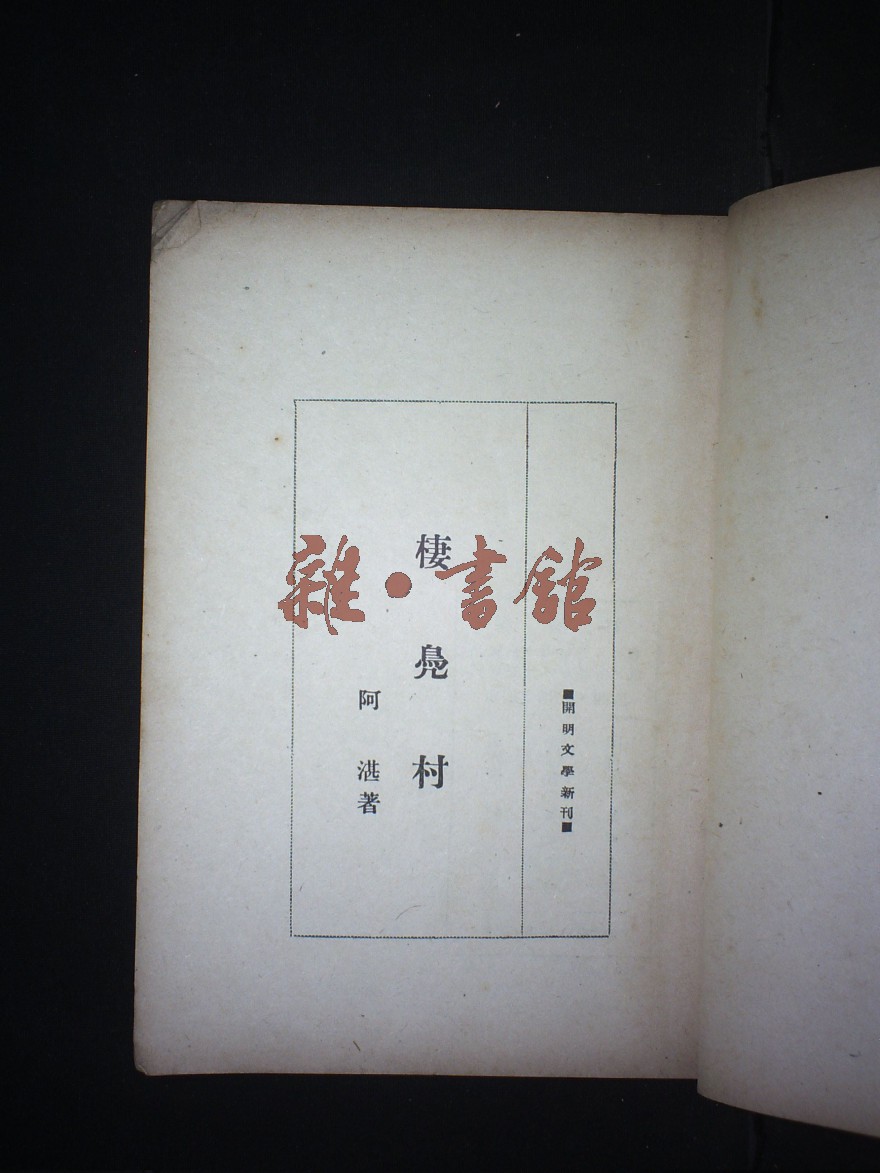 ■開明文學新刊■
棲鳬村
阿湛著
雜·書館